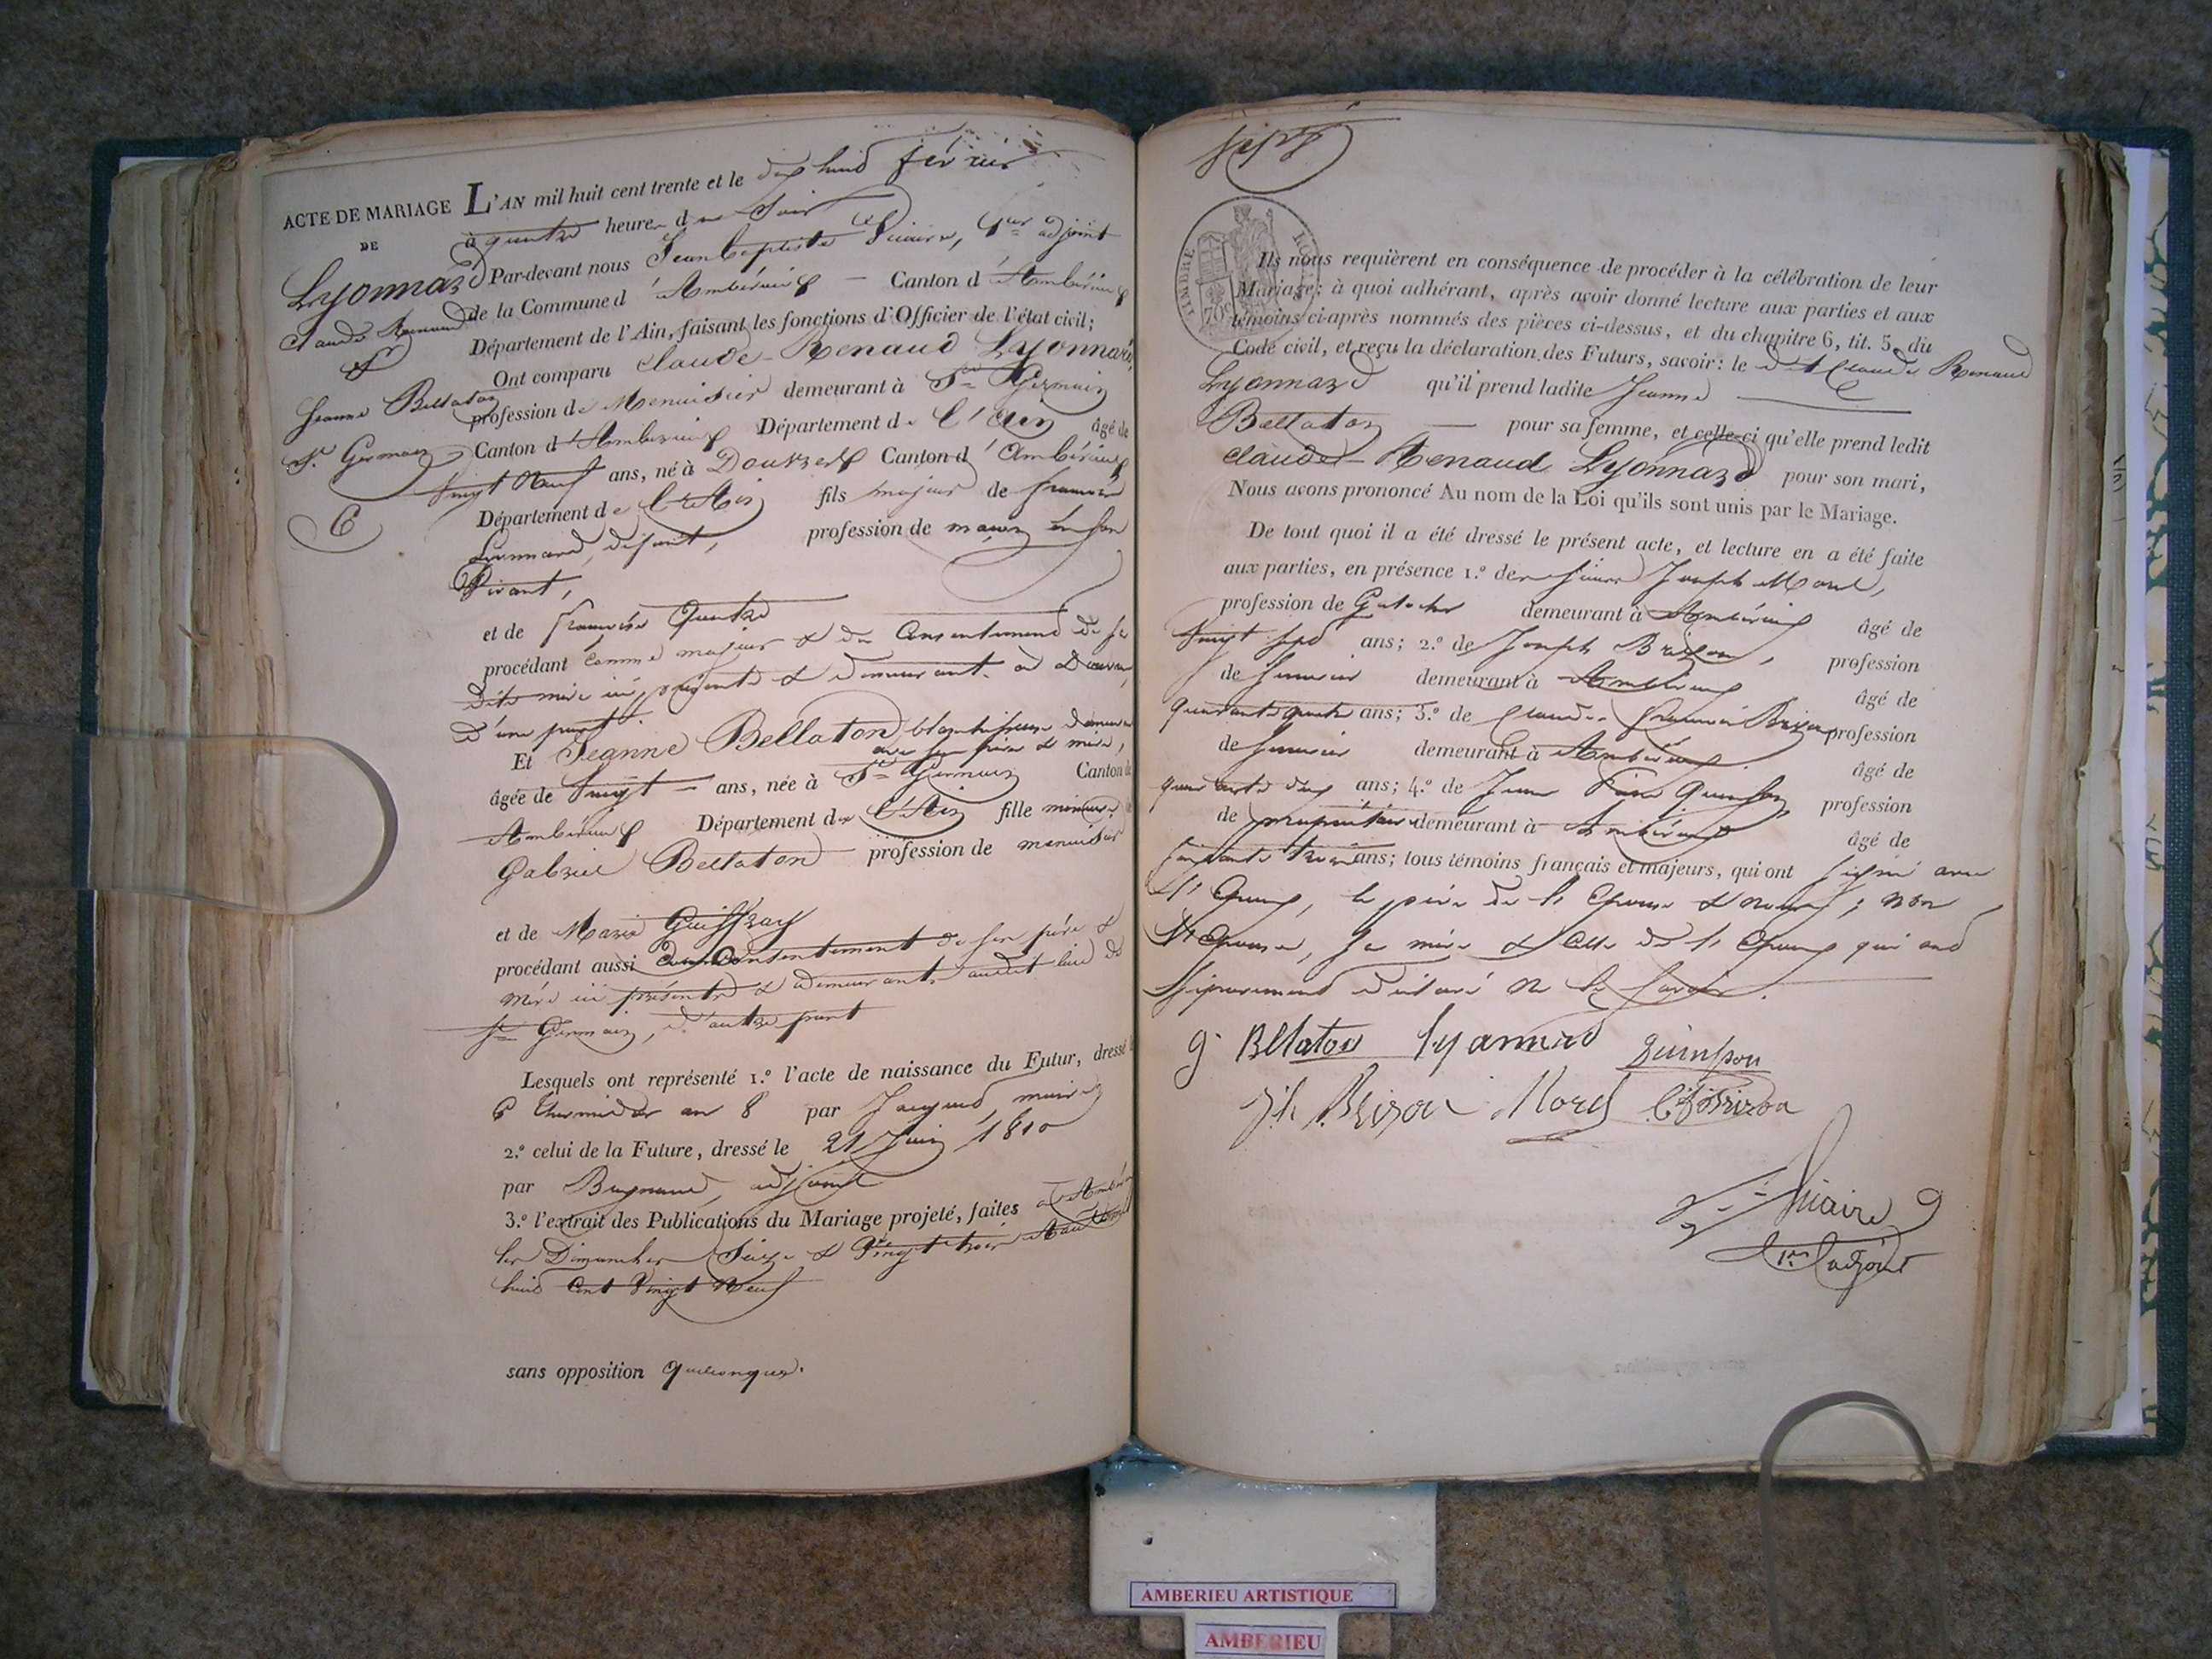 ACTE DE MARIAGE
DE
Lyonnard
Claude Renaud
&
Jeanne Bellaton
St. Germain
6
L'AN mil huit cent trente et le dix huit février
à quatre heures du Soir
Par-devant nous Jean baptiste Sicaire, 1er adjoint
de la Commune d'Ambérieux — Canton d'Ambérieux
Département de l'Ain, faisant les fonctions d'Officier de l'état civil;
Ont comparu Claude-Renaud Lyonnard,
profession de Menuisier demeurant à St Germain
Canton d'Ambérieux Département de l'Ain âgé de
Vingt Neuf ans, né à Douvres Canton d'Ambérieux
Département de l'Ain fils majeur de françois
Lyonnard, défunt, profession de maçon en son
Vivant,
et de françoise Quatre
procédant comme majeur & du Consentement de sa
dite mère ici présente & demeurant à Douvres
d'une part.
Et Jeanne Bellaton
avec ses père & mère,
âgée de Vingt — ans, née à St Germain Canton de
Ambérieux Département de l'Ain fille mineure de
Gabriel Bellaton profession de menuisier
et de Marie Guiffray
procédant aussi du Consentement de ses père &
mère ici présents & demeurants audit lieu de
St Germain, d'autre part
Lesquels ont représenté 1.º l'acte de naissance du Futur, dressé le
6 thermidor an 8 par Jacquand maire
2.º celui de la Future, dressé le 21 Juin 1810
par adjoint
3.º l'extrait des Publications du Mariage projeté, faites à
les Dimanches Seize & Vingt trois Août mil
huit Cent Vingt Neuf
sans opposition quelconque.
sept
TIMBRE ROYAL
70c
Ils nous requièrent en conséquence de procéder à la célébration de leur
Mariage; à quoi adhérant, après avoir donné lecture aux parties et aux
témoins ci-après nommés des pièces ci-dessus, et du chapitre 6, tit. 5, du
Code civil, et reçu la déclaration des Futurs, savoir: le dt Claude Renaud
Lyonnard qu'il prend ladite Jeanne
Bellaton — pour sa femme, et celle-ci qu'elle prend ledit
Claude-Renaud Lyonnard pour son mari,
Nous avons prononcé Au nom de la Loi qu'ils sont unis par le Mariage.
De tout quoi il a été dressé le présent acte, et lecture en a été faite
aux parties, en présence 1.º de Joseph Morel,
profession de demeurant à Ambérieux âgé de
Vingt sept ans; 2.º de Joseph Brizon, profession
de demeurant à Ambérieux âgé de
quarante quatre ans; 3.º de Claude françois Brizon profession
de demeurant à Ambérieux âgé de
quarante deux ans; 4.º de Jean Pierre Quinson, profession
de propriétaire demeurant à Ambérieux âgé de
soixante trois ans; tous témoins français et majeurs, qui ont signé avec
l'Epoux, le père de l'Epouse & nous; non
l'Epouse, sa mère & celle de l'Epoux qui ont
séparément déclaré ne le savoir.
g. Bellaton lyannard Quinson
Jh Brizon Morel C. f. Brizon
Sicaire
1er adjoint
AMBERIEU ARTISTIQUE
AMBERIEU